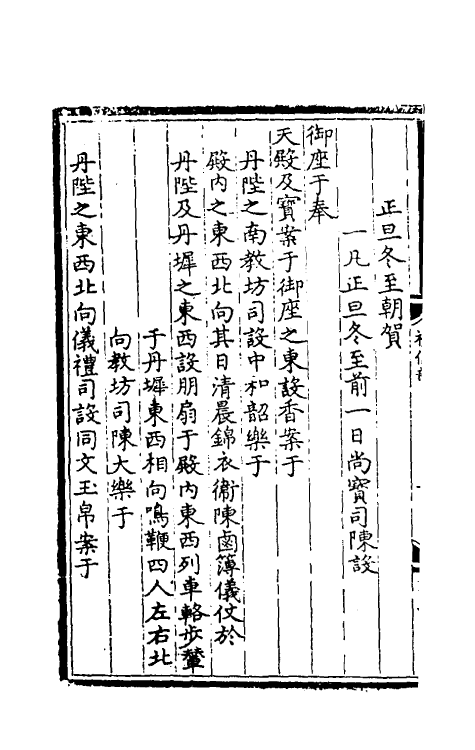 正旦冬至朝賀
一凡正旦冬至前一日尚寶司陳設
御座于奉
天殿及寶案于御座之東設香案于
丹陛之南教坊司設中和韶樂于
殿內之東西北向其日清晨錦衣衞陳鹵簿儀仗於
丹陛及丹墀之東西設明扇于殿內東西列車輅步輦
于丹墀東西相向鳴鞭四人左右北
向教坊司陳大樂于
丹陛之東西北向儀禮司設同文玉帛案于